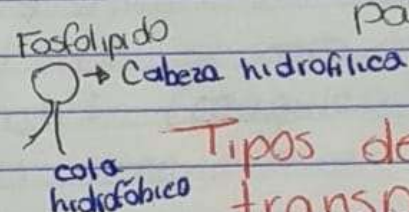 Fosfolipido
pa
→ Cabeza hidrofilica
cola
hidrofóbico
Tipos de
transp